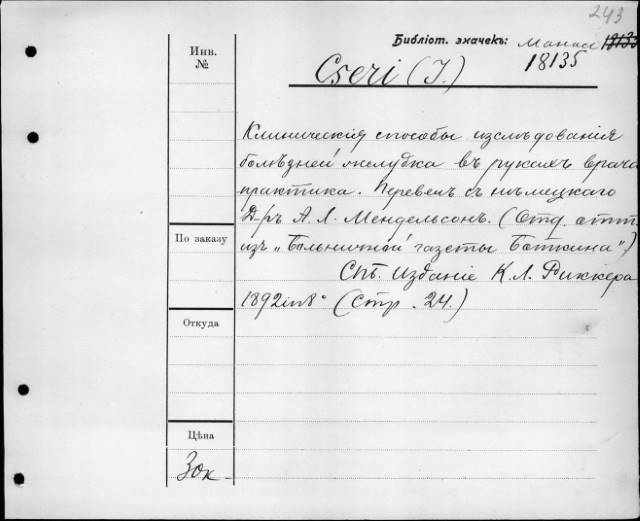 243
Библіот. значекъ: Манас 18133
18135
Инв.
№
Cseri (J.)
Клиническія способы изслѣдованія
болѣзней желудка въ рукахъ врача
практика. Перевелъ съ нѣмецкаго
Д-ръ А. Л. Мендельсонъ. (Отд. отт.
По заказу
изъ „Больничной газеты Боткина".)
Спб. Изданіе К. Л. Риккера
1892 in 8° (Стр. 24.)
Откуда
Цѣна
30к.